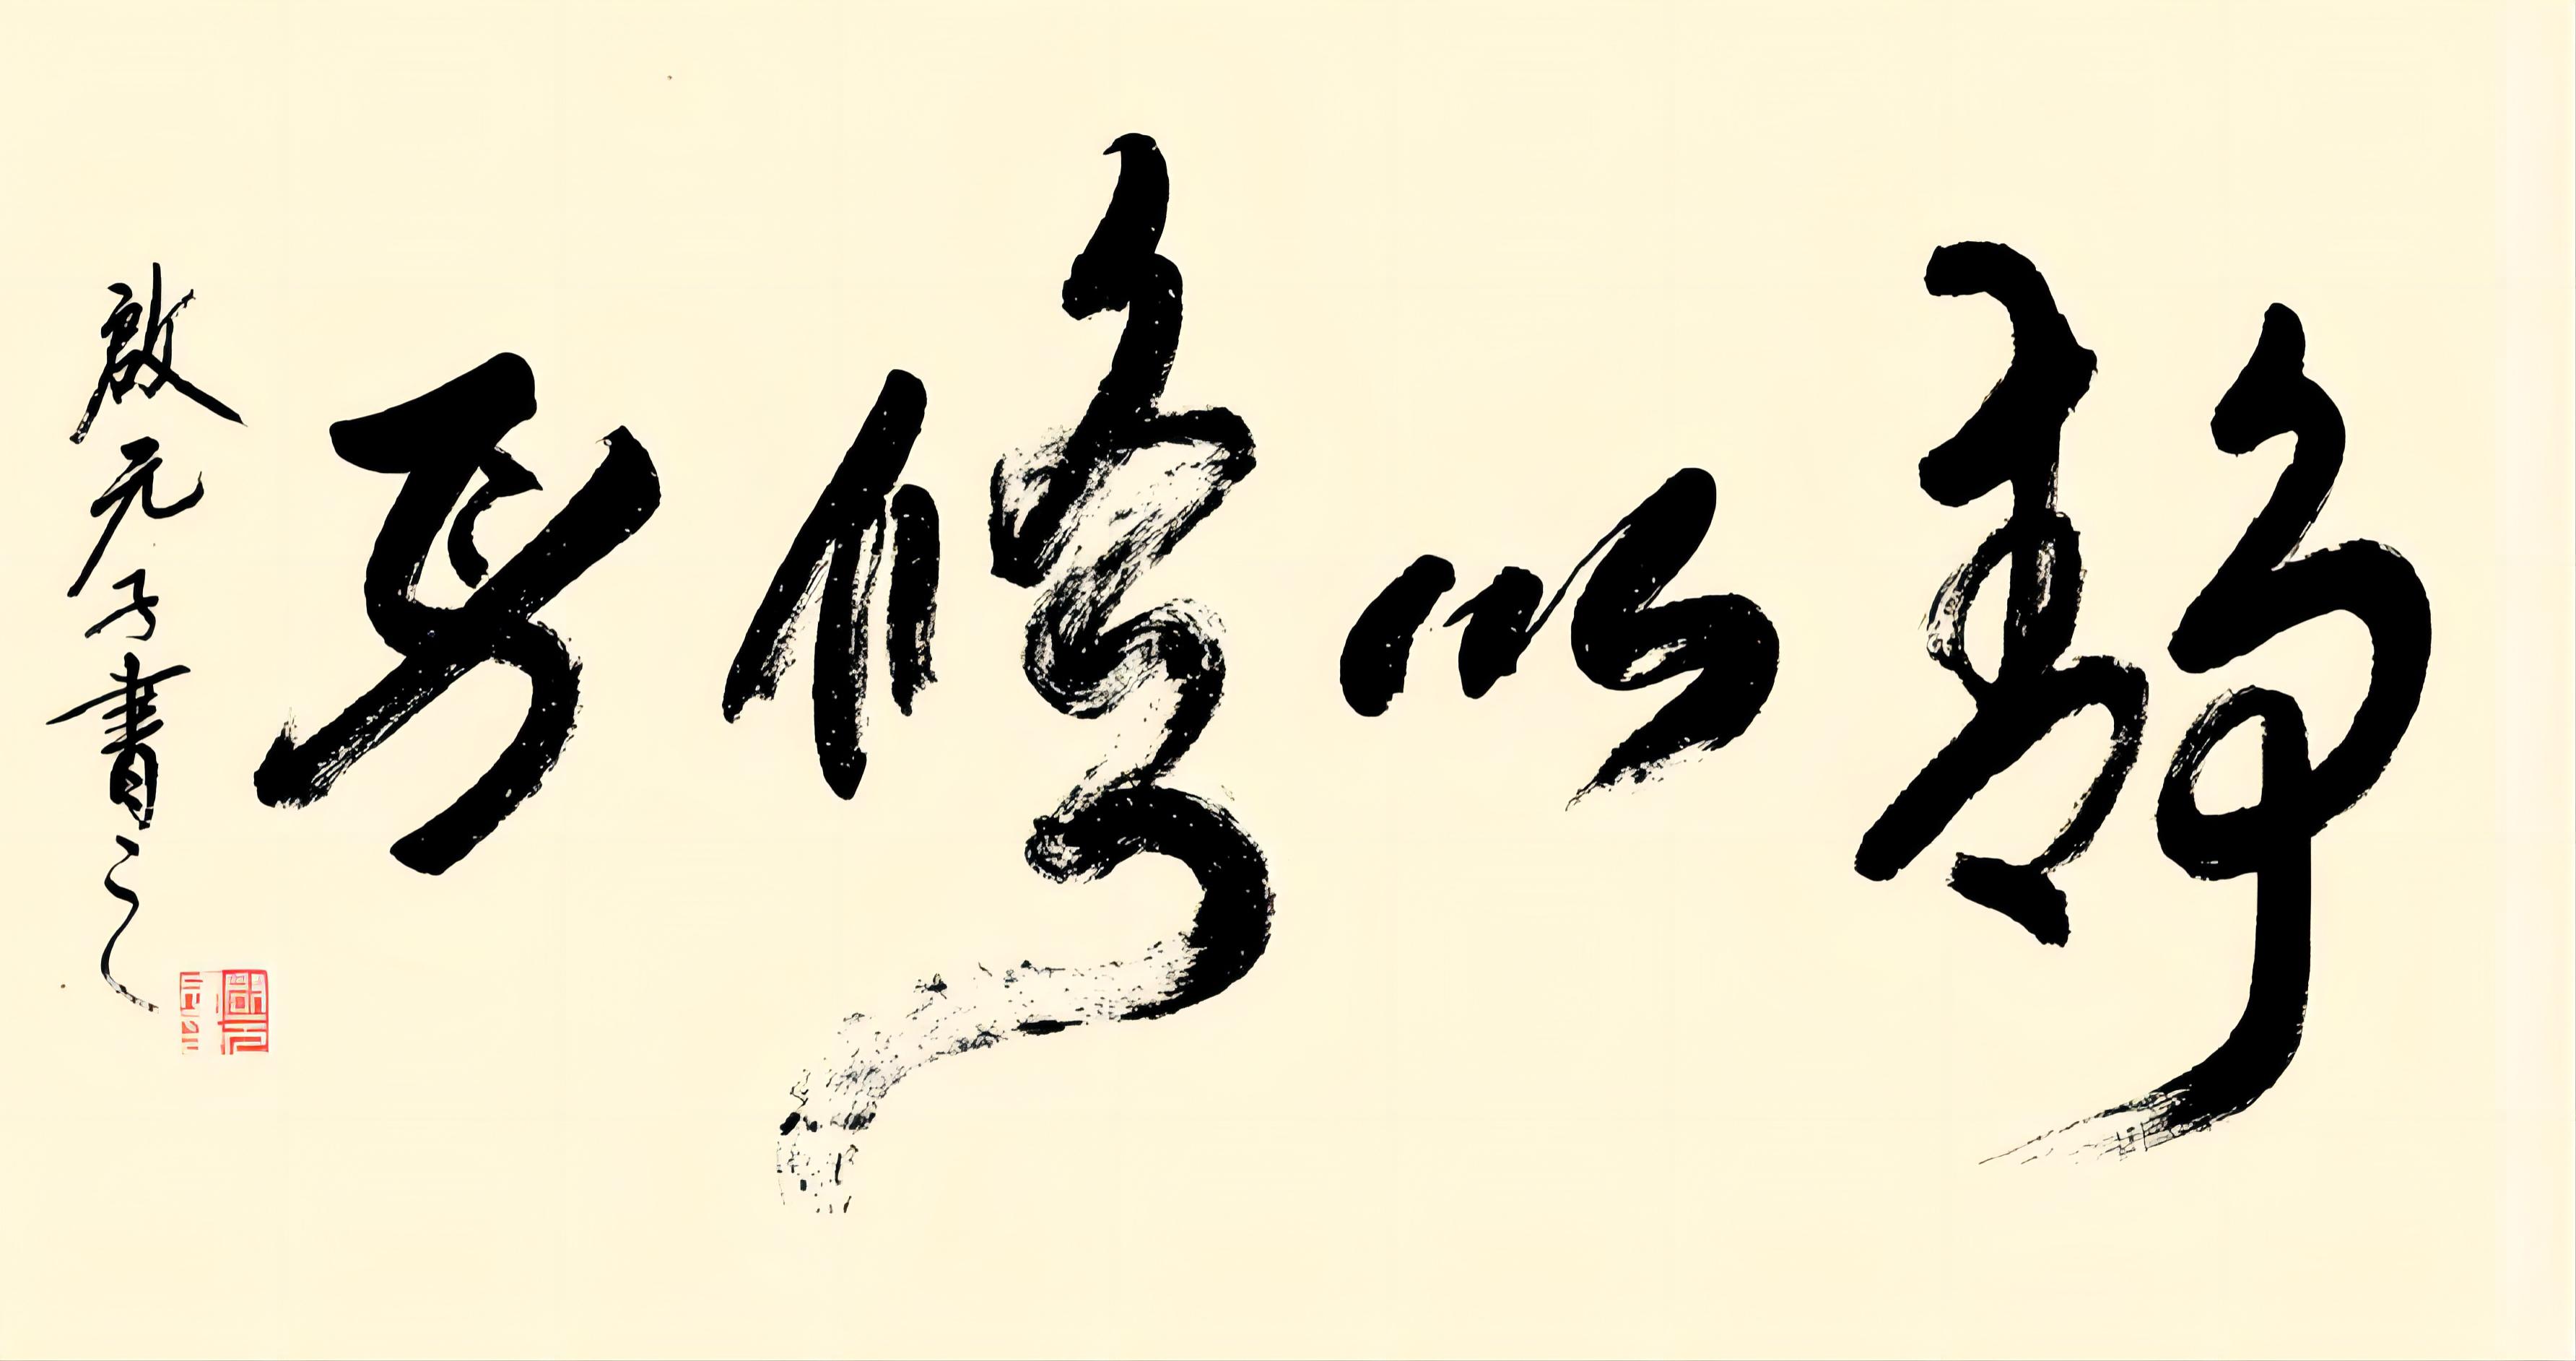 靜以修身
啟元子書之